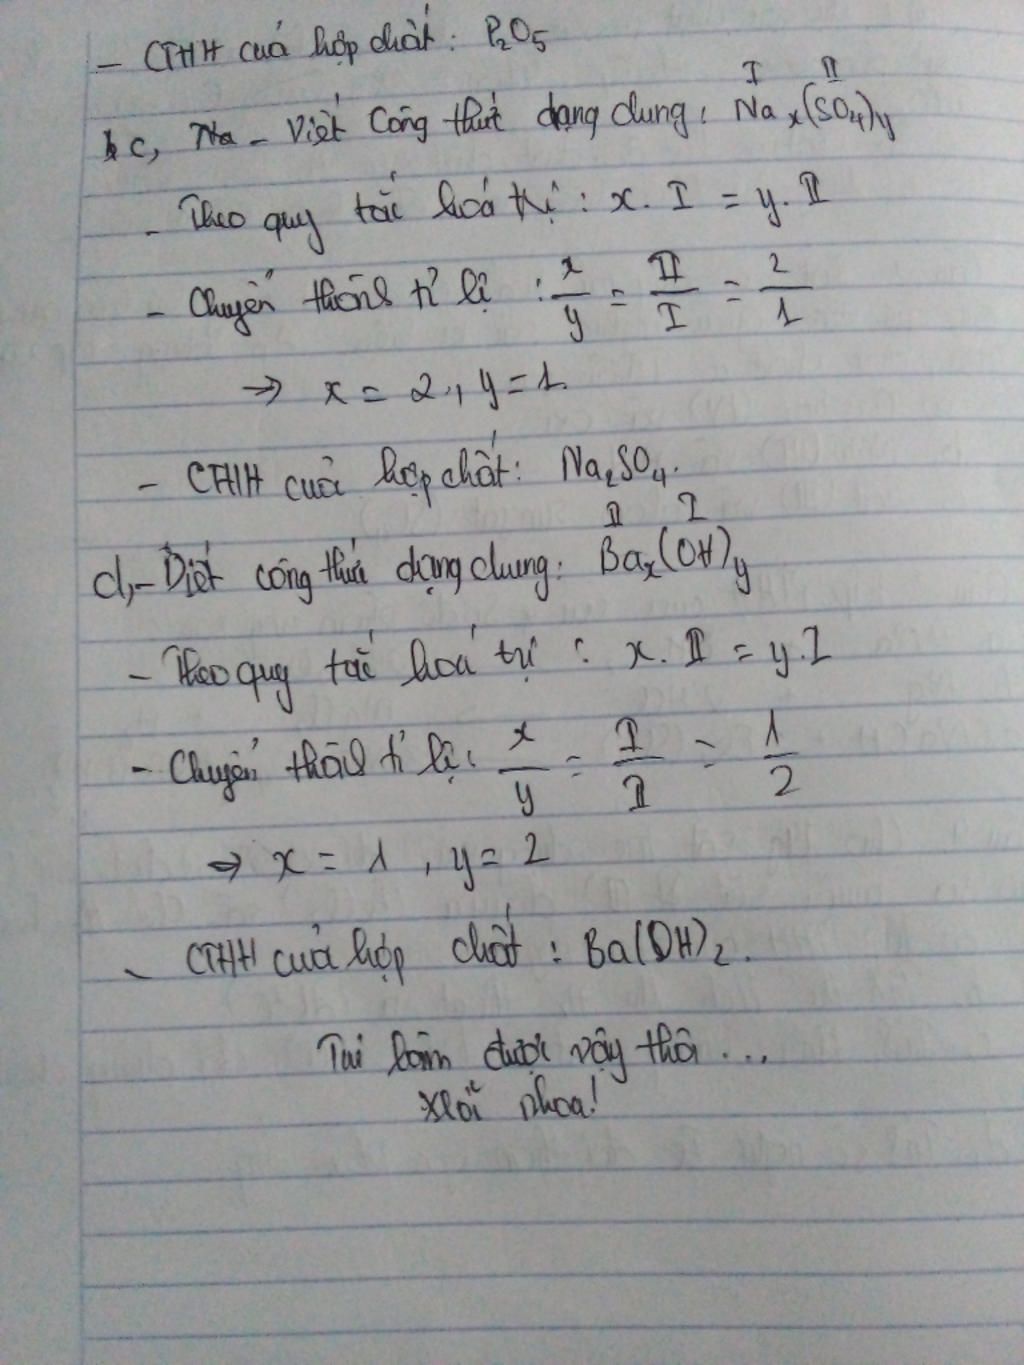 - CTHH của hợp chất : P₂O₅
c, - Viết Công thức dạng chung : Naₓ(SO₄)y
I II
- Theo quy tắc hoá trị : x. I = y. II
- Chuyển thành tỉ lệ : x/y = II/I = 2/1
=> x = 2, y = 1.
- CTHH của hợp chất : Na₂SO₄.
II I
d, - Viết công thức dạng chung : Baₓ(OH)y
- Theo quy tắc hoá trị : x. II = y. I
- Chuyển thành tỉ lệ : x/y = I/II = 1/2
=> x = 1, y = 2
- CTHH của hợp chất : Ba(OH)₂.
Tui làm được vậy thôi ...
xlỗi nhoa!